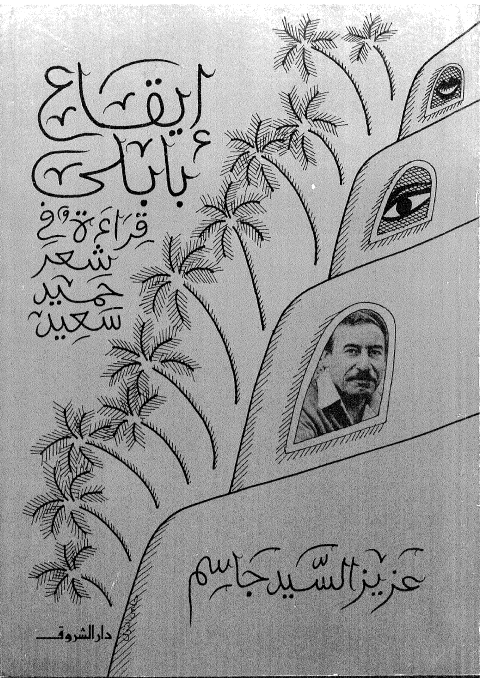 إيقاع
بابلى
قِراءَة في
شعر
حميد
سَعيد
عزيز السَّيد جَاسِم
دار الشروق